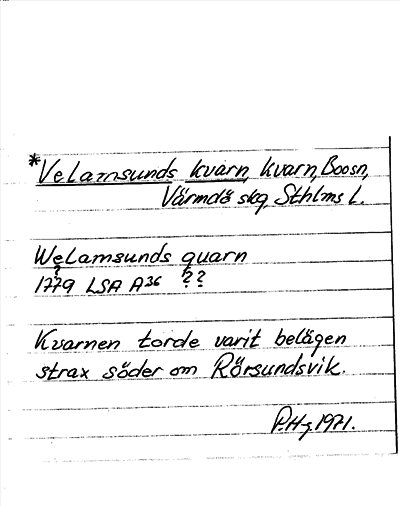 *Velamsunds kvarn, kvarn, Boosn,
Värmdö skg, Sthlms l.
Welamsunds quarn
? ??
1779 LSA A36
Kvarnen torde varit belägen
strax söder om Rörsundsvik.
P.Hg 1971.